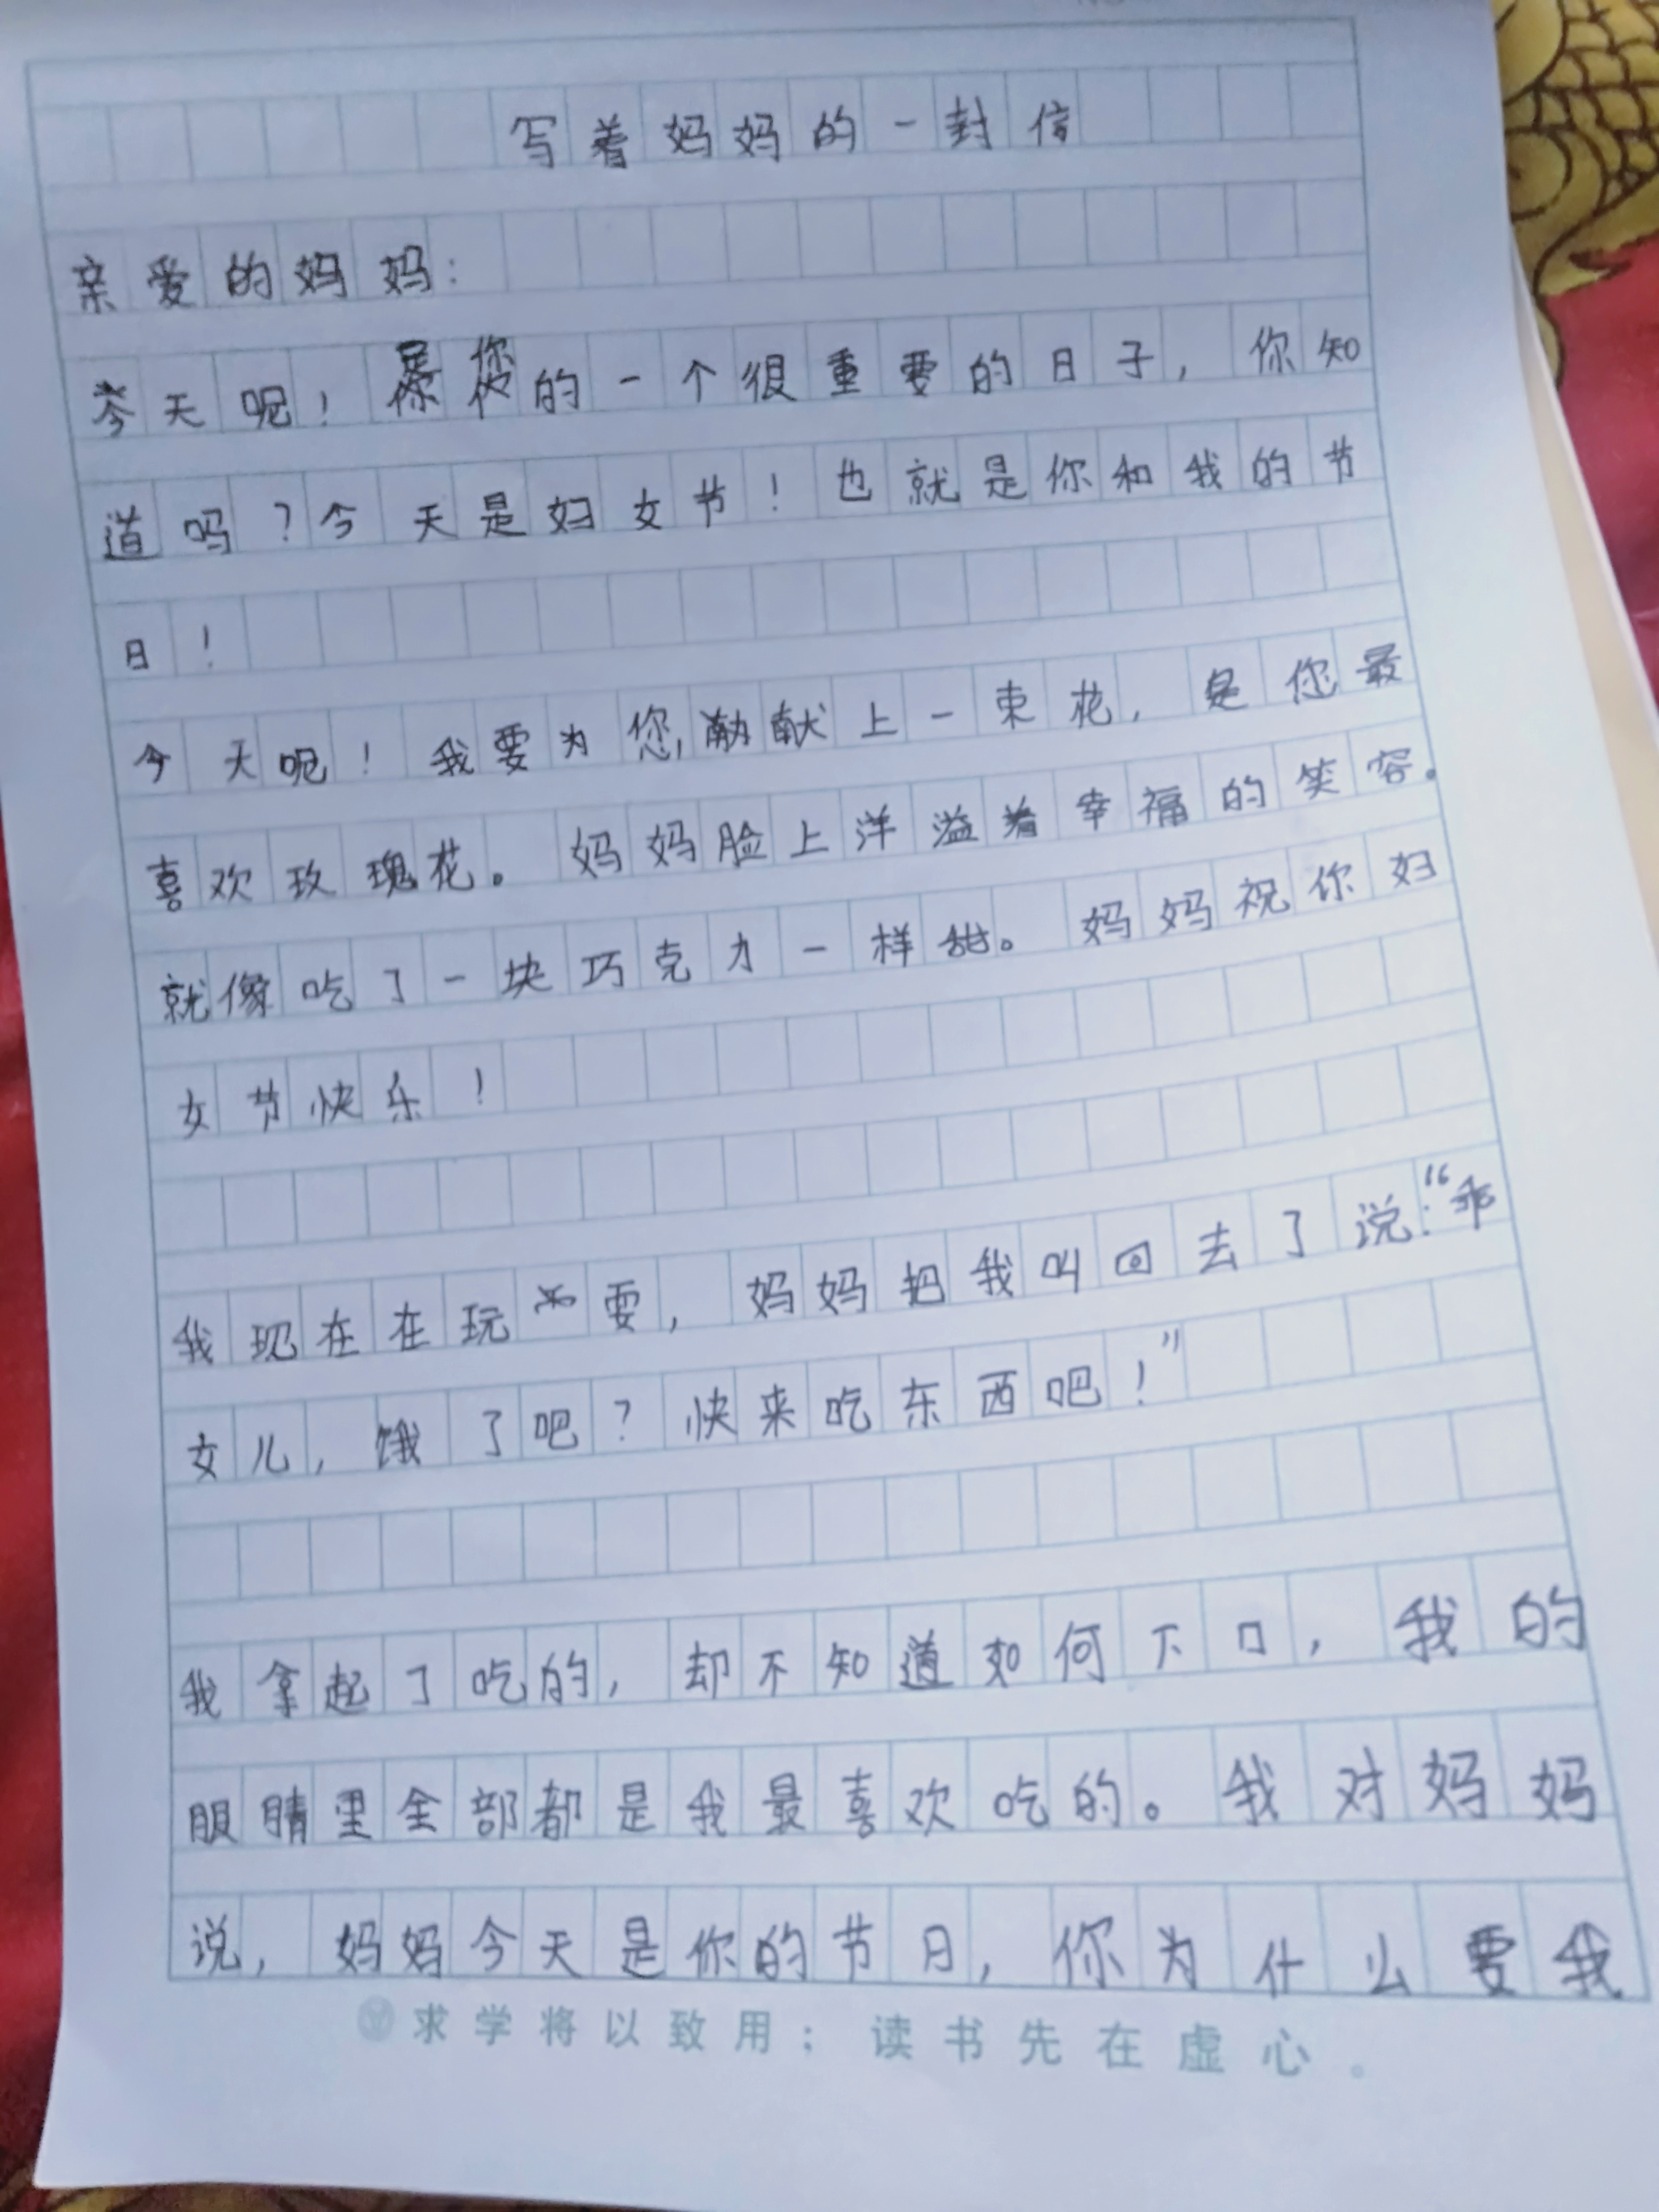 写着妈妈的一封信
亲爱的妈妈：
今天呢！是您的一个很重要的日子，你知
道吗？今天是妇女节！也就是你和我的节
日！
今天呢！我要为您献上一束花，是您最
喜欢玫瑰花。妈妈脸上洋溢着幸福的笑容。
就像吃了一块巧克力一样甜。妈妈祝你妇
女节快乐！
我现在在玩耍，妈妈把我叫回去了说：“乖
女儿，饿了吧？快来吃东西吧！”
我拿起了吃的，却不知道如何下口，我的
眼睛里全部都是我最喜欢吃的。我对妈妈
说，妈妈今天是你的节日，你为什么要我
求学将以致用；读书先在虚心。